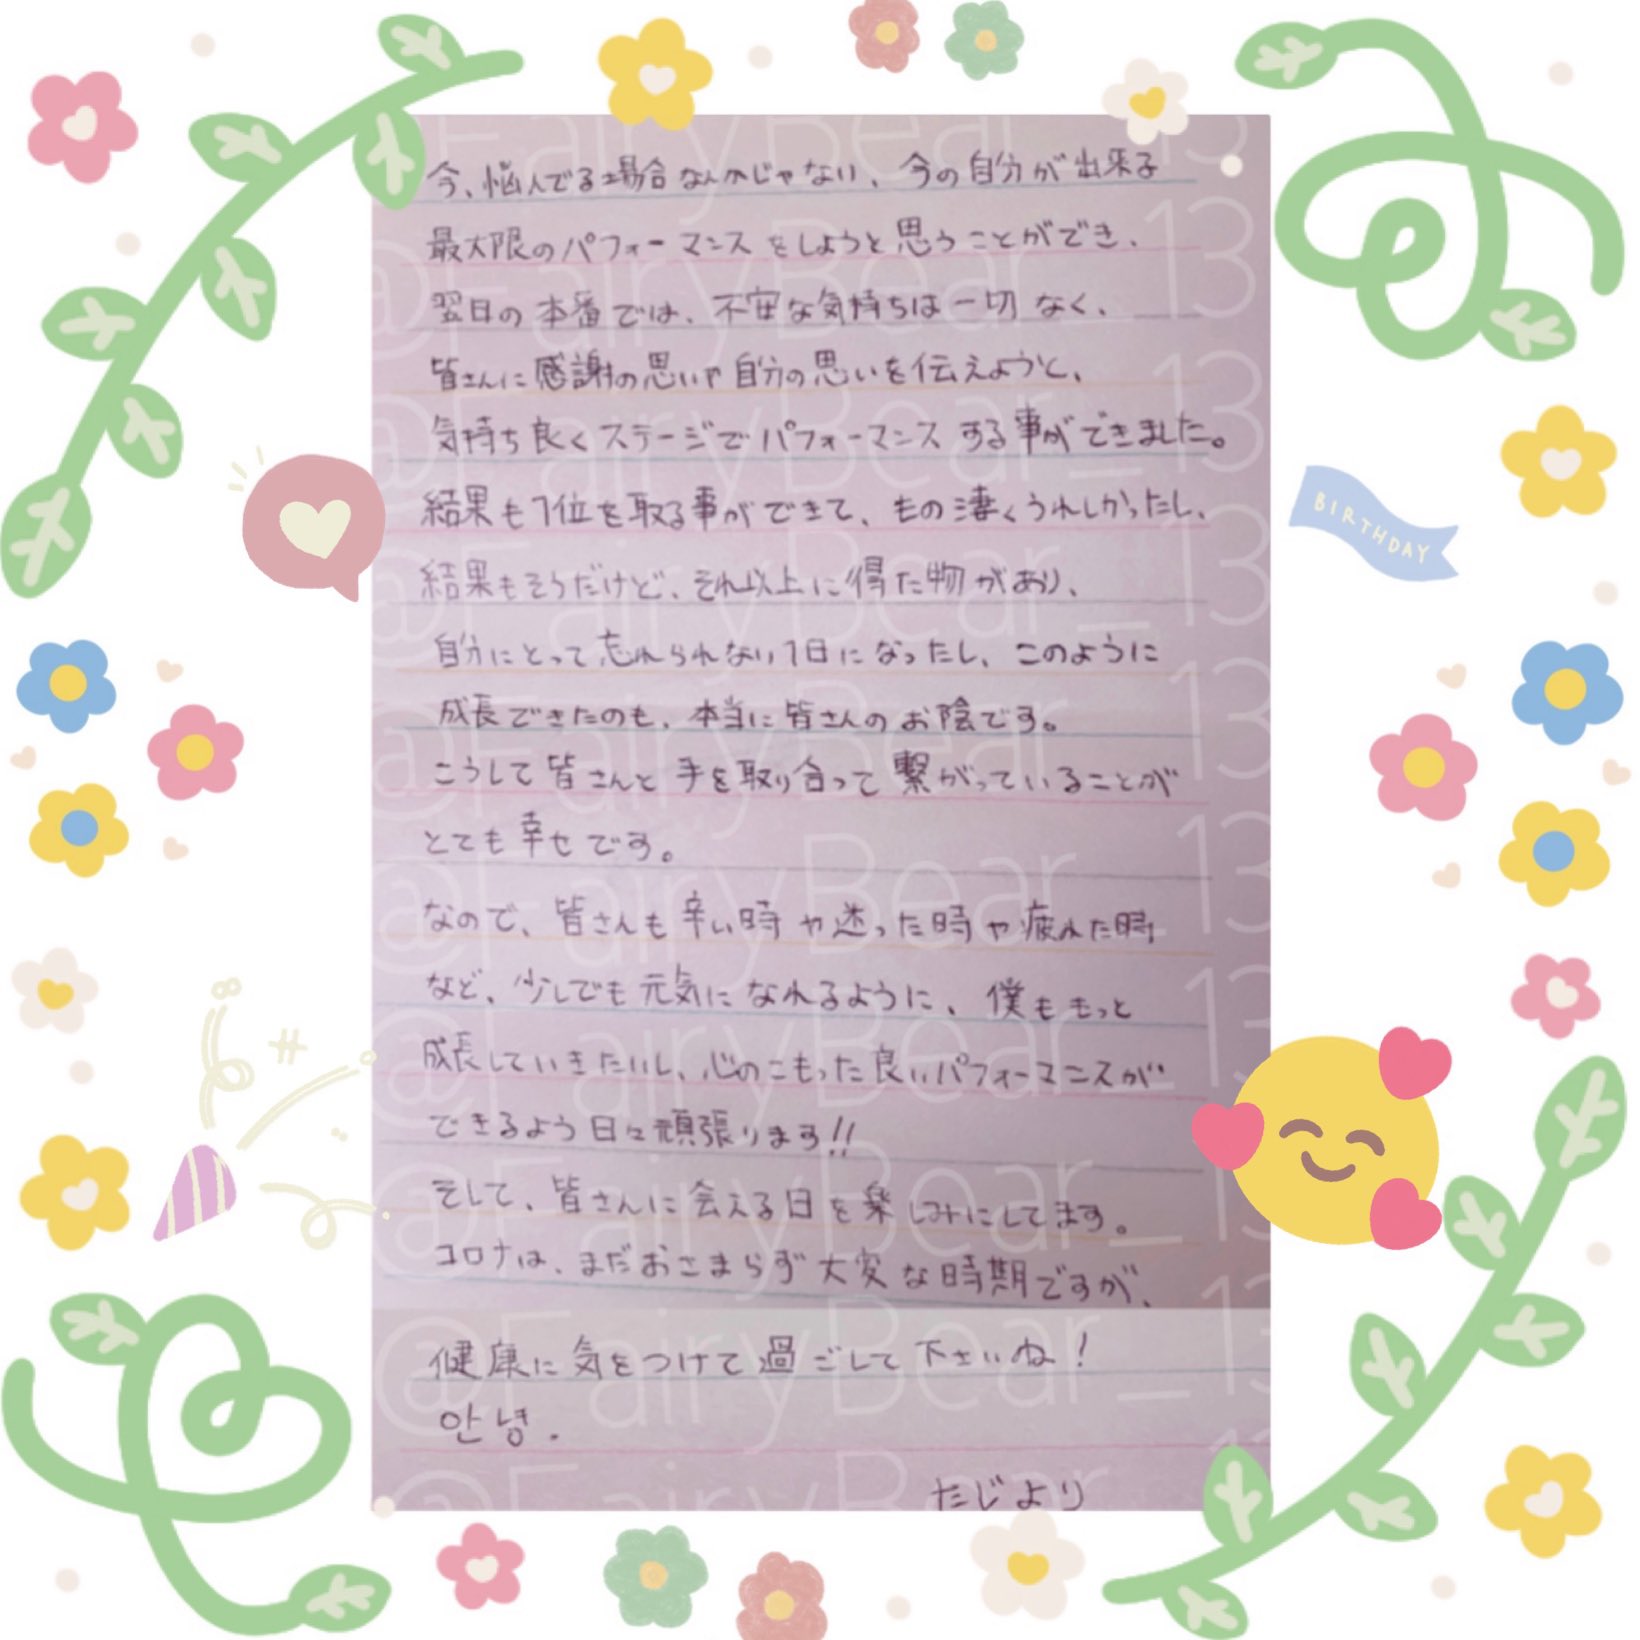 今、悩んでる場合なんかじゃない、今の自分が出来る
最大限のパフォーマンスをしようと思うことができ、
翌日の本番では、不安な気持ちは一切なく、
皆さんに感謝の思いや自分の思いを伝えようと、
気持ち良くステージでパフォーマンスする事ができました。
結果も1位を取る事ができて、もの凄くうれしかったし、
結果もそうだけど、それ以上に得た物があり、
自分にとって忘れられない1日になったし、このように
成長できたのも、本当に皆さんのお陰です。
こうして皆さんと手を取り合って繋がっていることが
とても幸せです。
なので、皆さんも辛い時や迷った時や疲れた時
など、少しでも元気になれるように、僕ももっと
成長していきたいし、心のこもった良いパフォーマンスが
できるよう日々頑張ります!!
そして、皆さんに会える日を楽しみにしてます。
コロナは、まだおさまらず大変な時期ですが、
健康に気をつけて過ごして下さいね!
안녕.
たじより
BIRTHDAY
@FairyBear_13